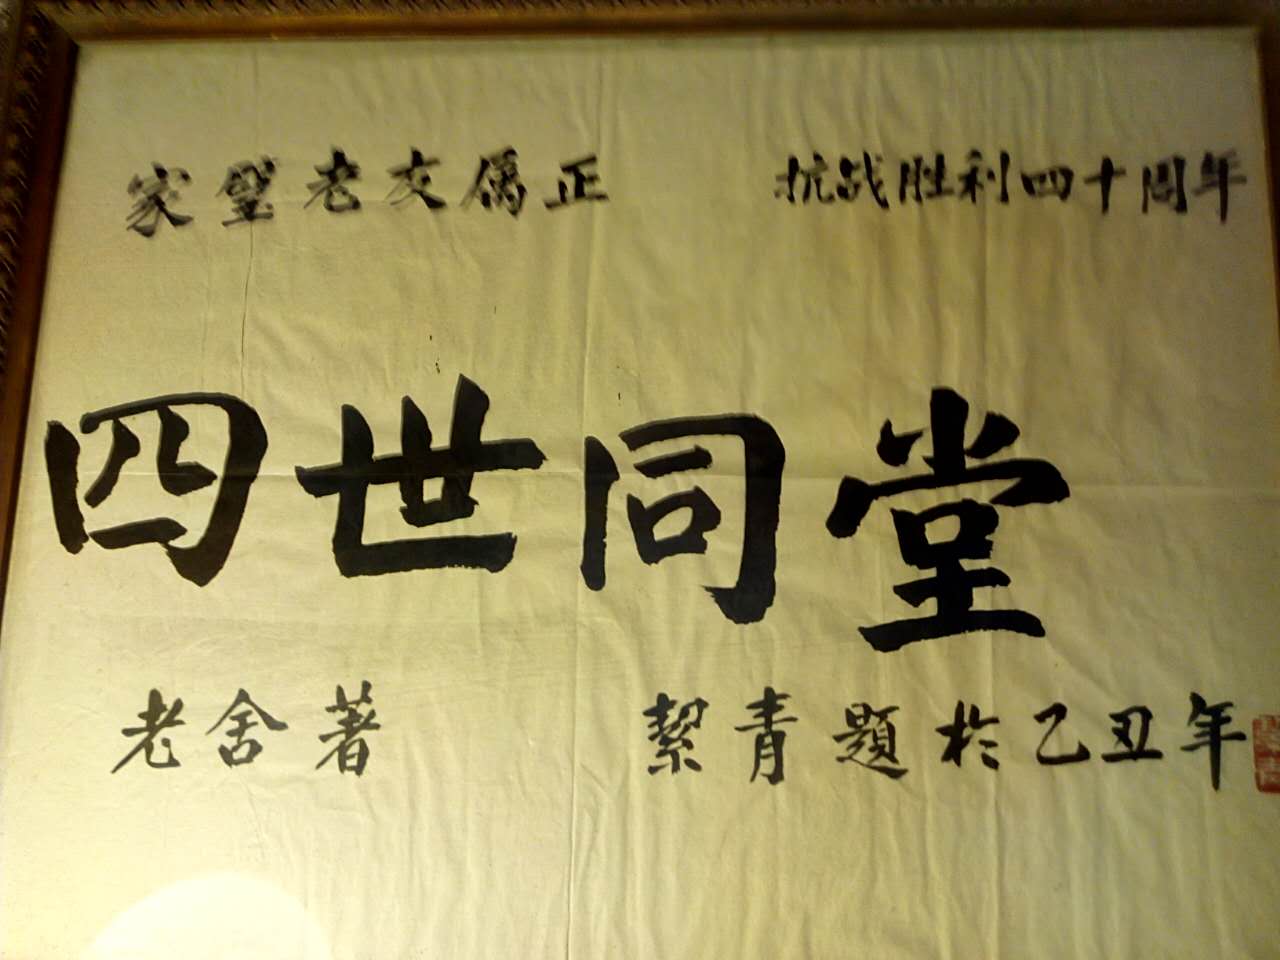 家璧老友属正 抗战胜利四十周年
四世同堂
老舍著 絜青题于乙丑年